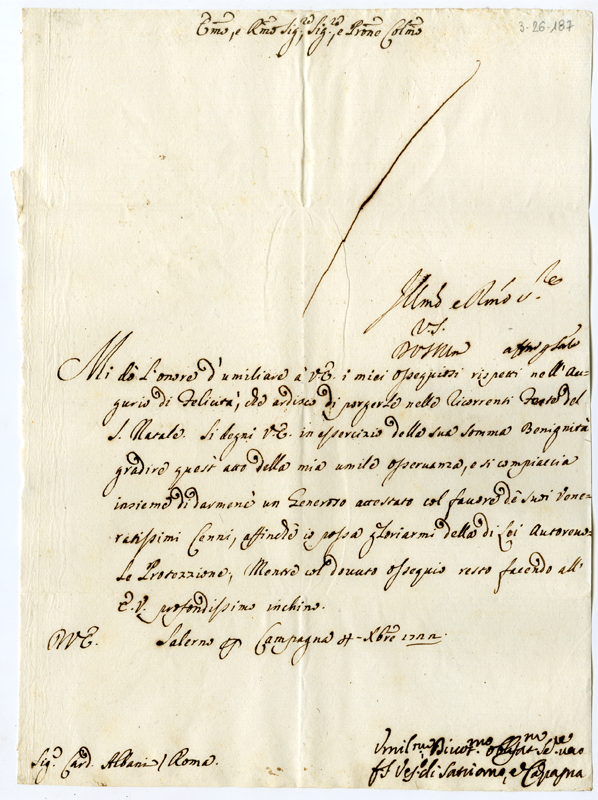 3-26-187
Em̃o, e Rm̃o Sig.re, Sig.re, e Prone Colm̃o
Illm̃o e Rm̃o S.re
V.S.
Mi dò l'onore d'umiliare à V.E. i miei ossequiosi rispetti nell'Au-
gurio di Felicità, che ardisco di porgerle nelle Ricorrenti Feste del
S. Natale. Si degni V.E. in essercizio della sua somma Benignità
gradire quest'atto della mia umile osservanza, e si compiaccia
insieme di darmene un Generoso attestato col favore de suoi Vene-
ratissimi Cenni, affinchè io possa gloriarmi della di Lei Autorevo-
le Protezzione, Mentre col dovuto ossequio resto facendo all'
E.V. profondissimo inchino.
D.V.E. Salerno Campagna Xbre 1722.
Sig.r Card. Albani / Roma.
Umil.mo Divot.mo Se.re vero
Ves.o di Satriano, e Campagna